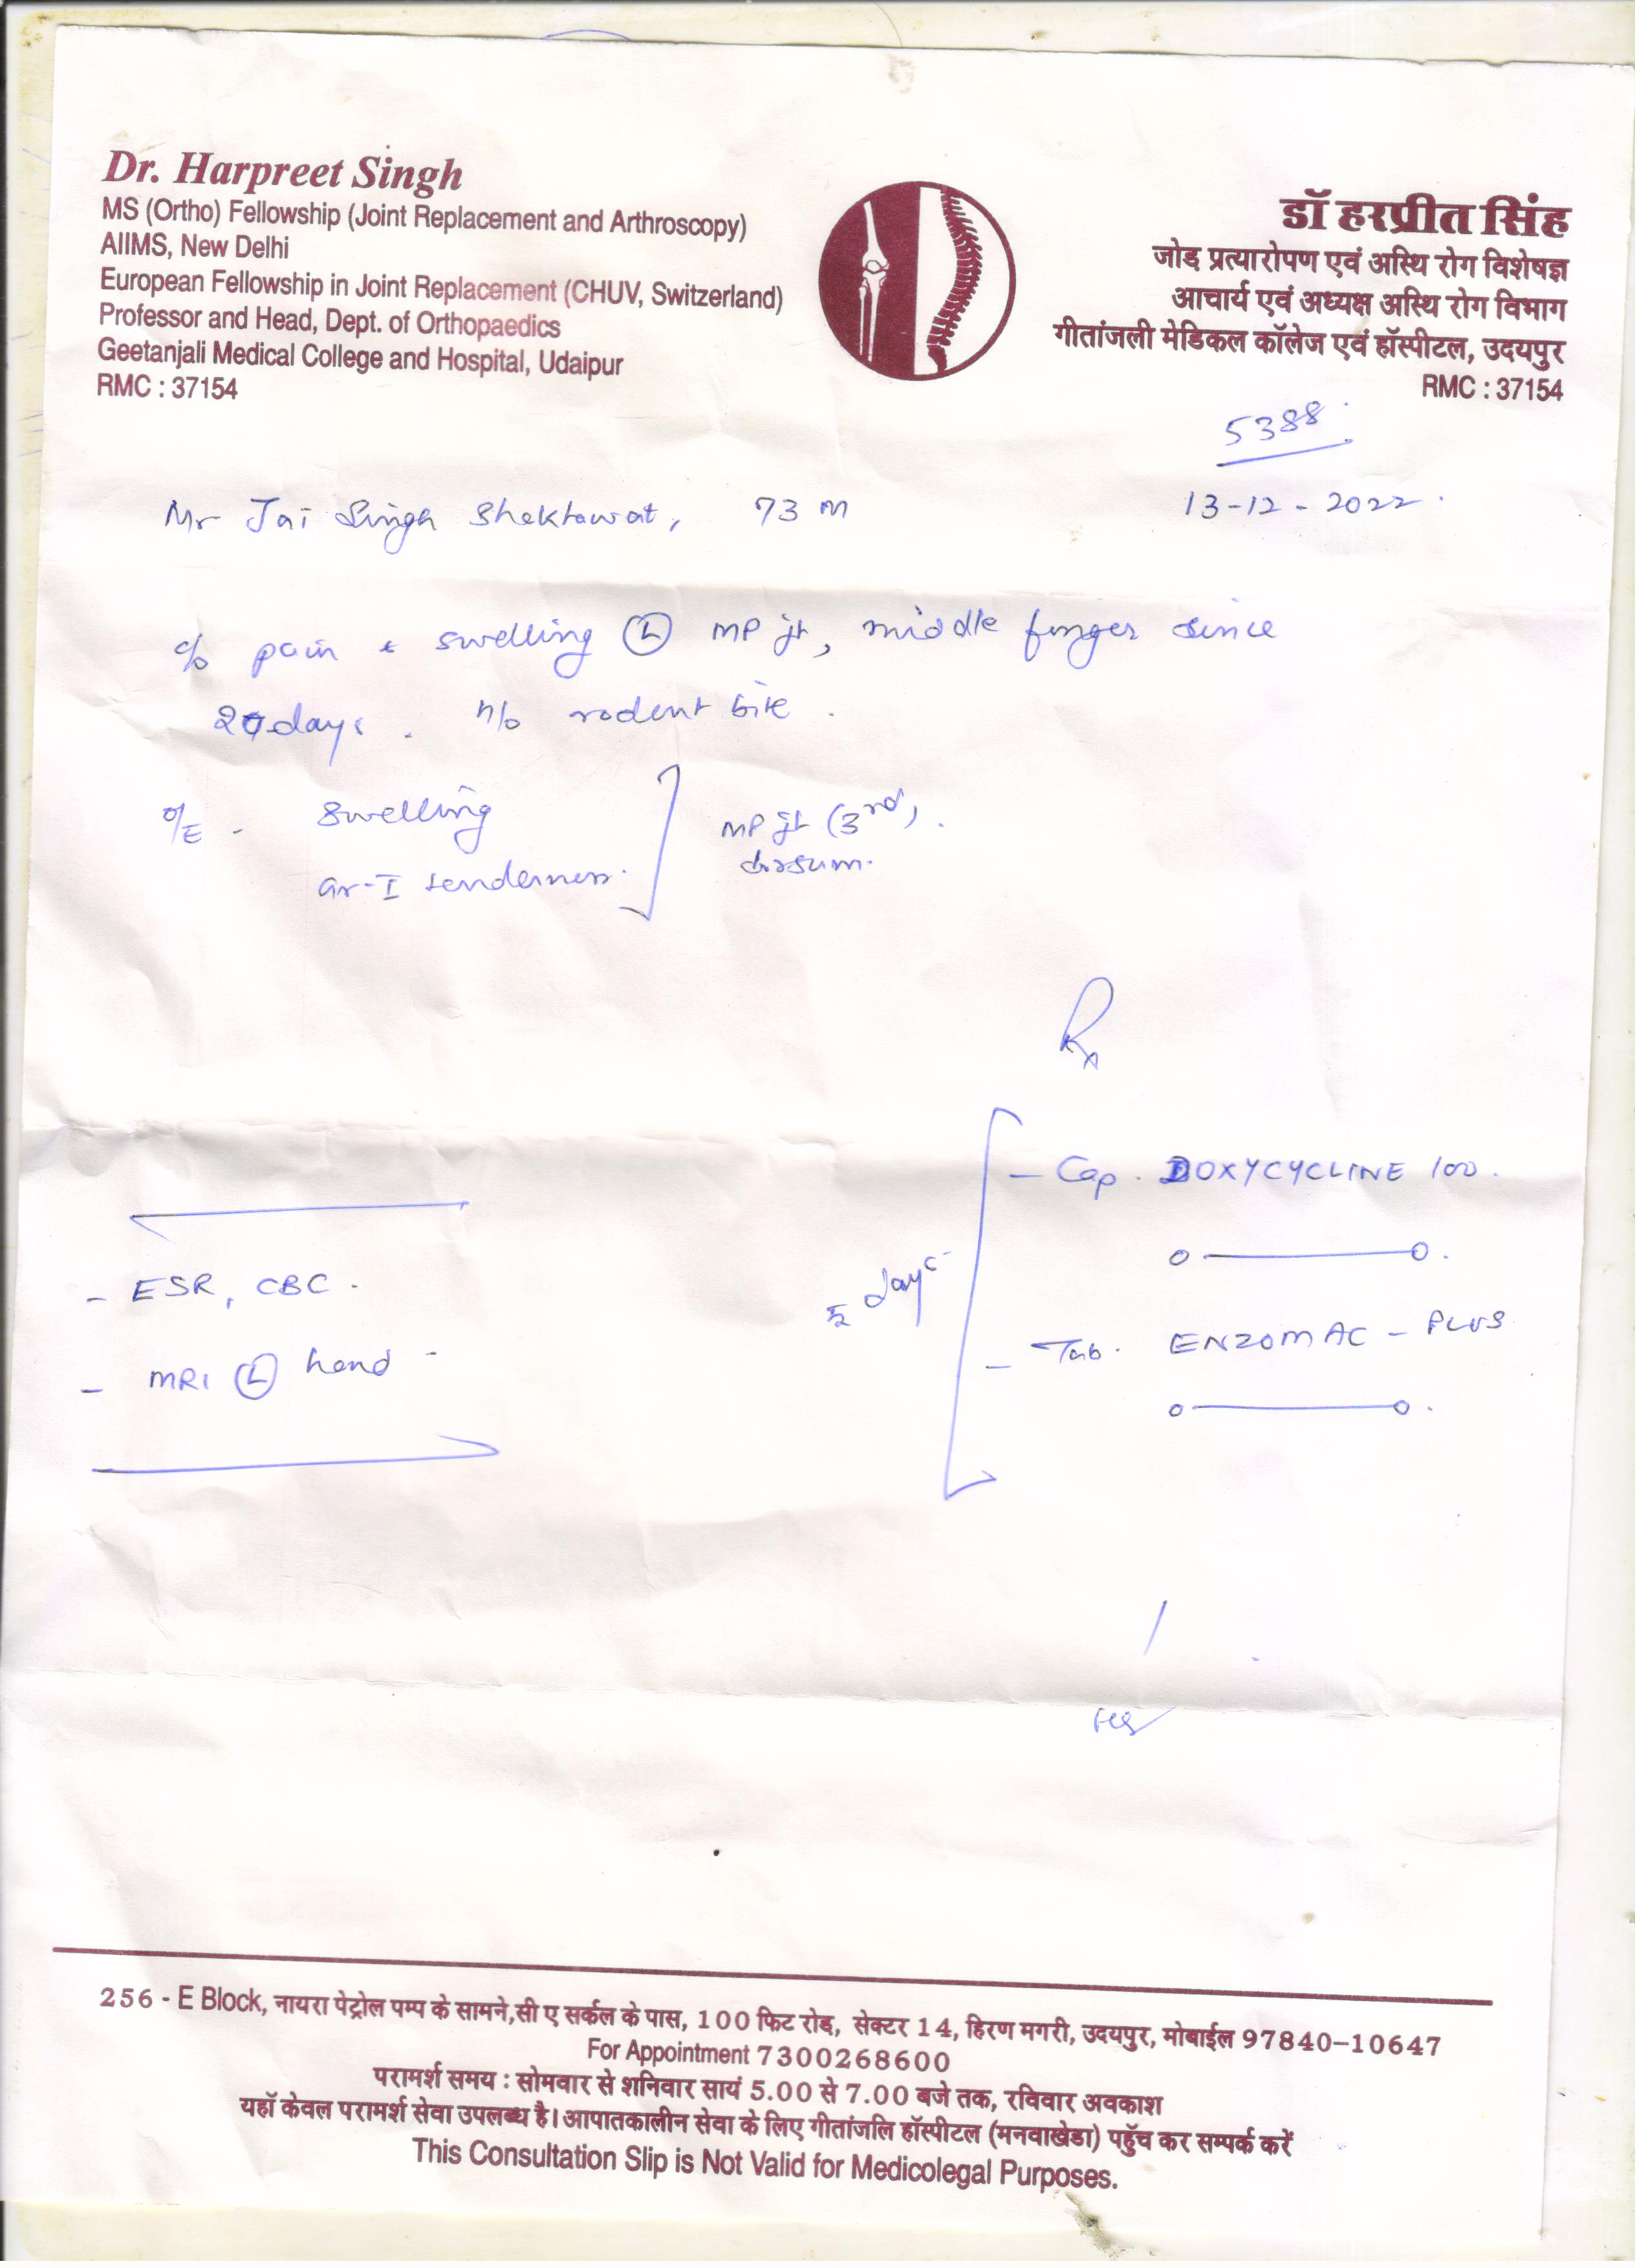 Dr. Harpreet Singh
MS (Ortho) Fellowship (Joint Replacement and Arthroscopy)
AIIMS, New Delhi
European Fellowship in Joint Replacement (CHUV, Switzerland)
Professor and Head, Dept. of Orthopaedics
Geetanjali Medical College and Hospital, Udaipur
RMC : 37154
डॉ हरप्रीत सिंह
जोड प्रत्यारोपण एवं अस्थि रोग विशेषज्ञ
आचार्य एवं अध्यक्ष अस्थि रोग विभाग
गीतांजली मेडिकल कॉलेज एवं हॉस्पीटल, उदयपुर
RMC : 37154
5388
13-12-2022
Mr Jai Singh Shektawat, 73 M
c/o pain & swelling (L) MP jt, middle finger since
days. h/o rodent bite.
O/E - swelling
Gr-I tenderness.
MP jt (3rd).
dorsum.
Rx
- Cap. DOXYCYCLINE 100.
o ——— o.
- Tab. ENZOMAC - PLUS
o ——— o.
5 days
- ESR, CBC.
- MRI (L) hand -
256 - E Block, नायरा पेट्रोल पम्प के सामने,सी ए सर्कल के पास, 100 फिट रोड, सेक्टर 14, हिरण मगरी, उदयपुर, मोबाईल 97840-10647
For Appointment 7300268600
परामर्श समय : सोमवार से शनिवार सायं 5.00 से 7.00 बजे तक, रविवार अवकाश
यहॉ केवल परामर्श सेवा उपलब्ध है। आपातकालीन सेवा के लिए गीतांजलि हॉस्पीटल (मनवाखेडा) पहुँच कर सम्पर्क करें
This Consultation Slip is Not Valid for Medicolegal Purposes.